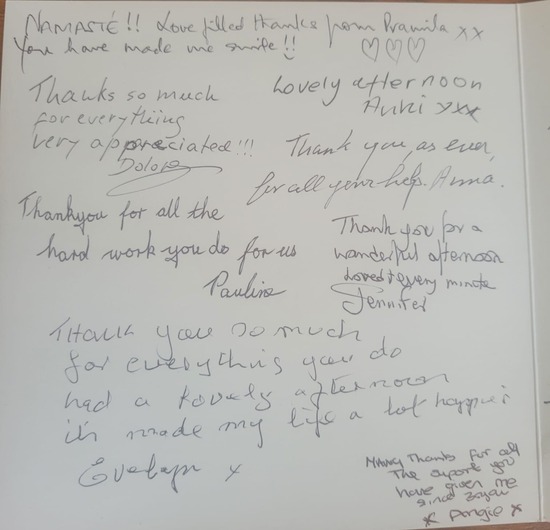 NAMASTÉ!! Love filled thanks from Pramila xx
You have made me smile!! ♡♡♡
Thanks so much
for everything
very appreciated!!!
Dolores
Lovely afternoon
Anni xxx
Thank you, as ever,
for all your help. Anna.
Thankyou for all the
hard work you do for us
Pauline
Thank you for a
wonderful afternoon
Loved every minute
Jennifer
Thank you so much
for everything you do
had a lovely afternoon
it's made my life a lot happier
Evelyn x
Many Thanks for all
The support you
have given me
since
x Angie x